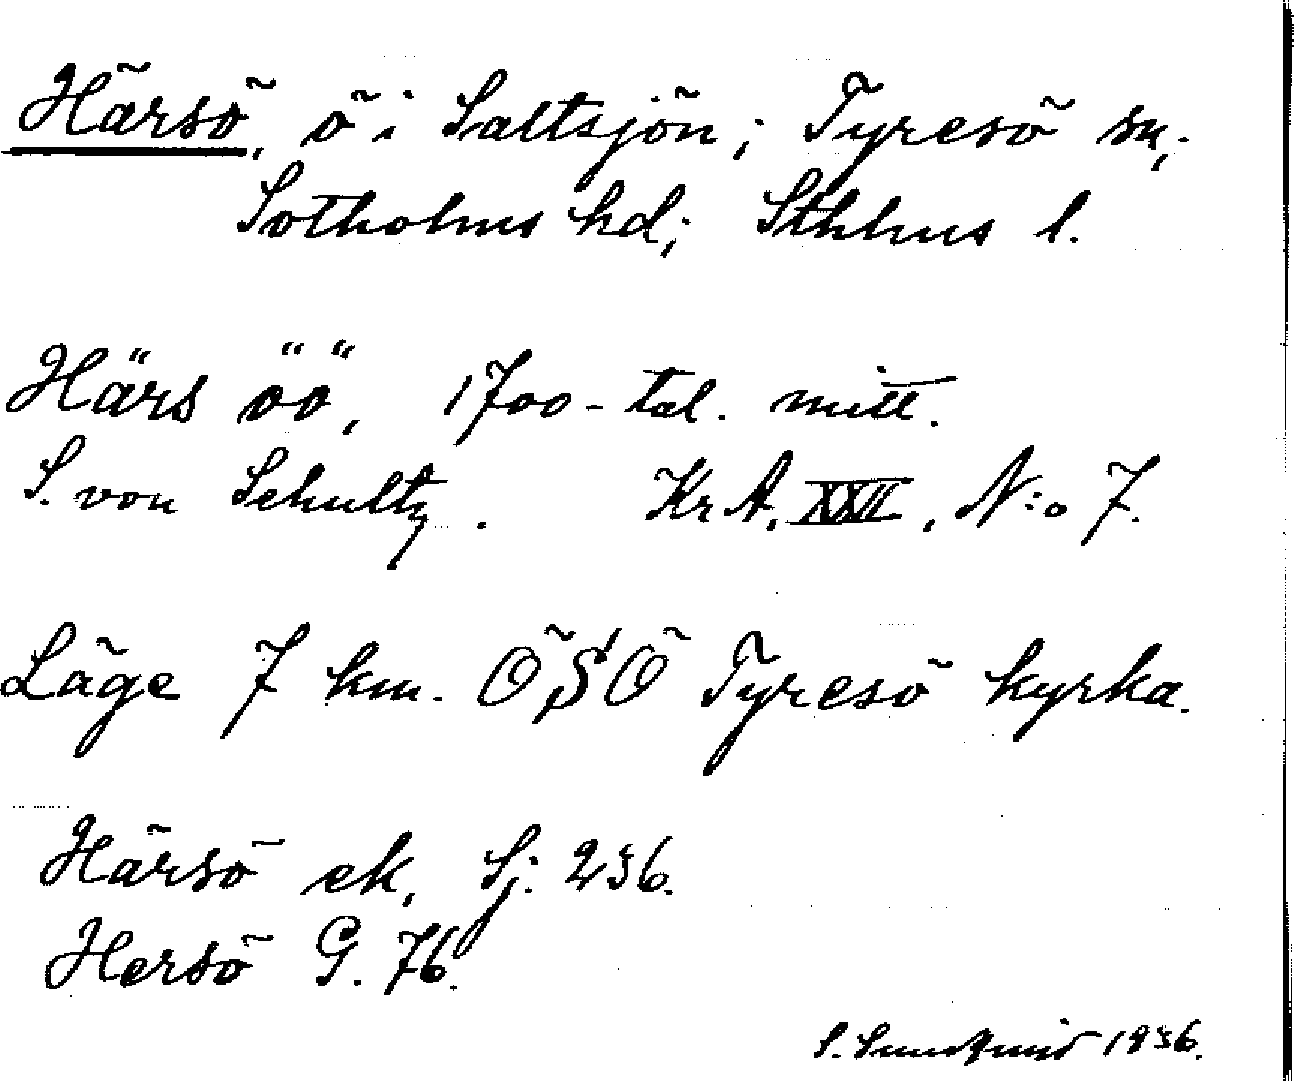 Härsö, ö i Saltsjön; Tyresö sn,
Sotholms hd; Sthlms l.
Härs öö, 1700-tal. mitt.
S. von Schultz. KrA, XXII, N:o 7.
Läge 7 km. ÖSÖ Tyresö kyrka.
Härsö ek, Sj. 236.
Hersö G. 76.
S. Sundqvist 1936.